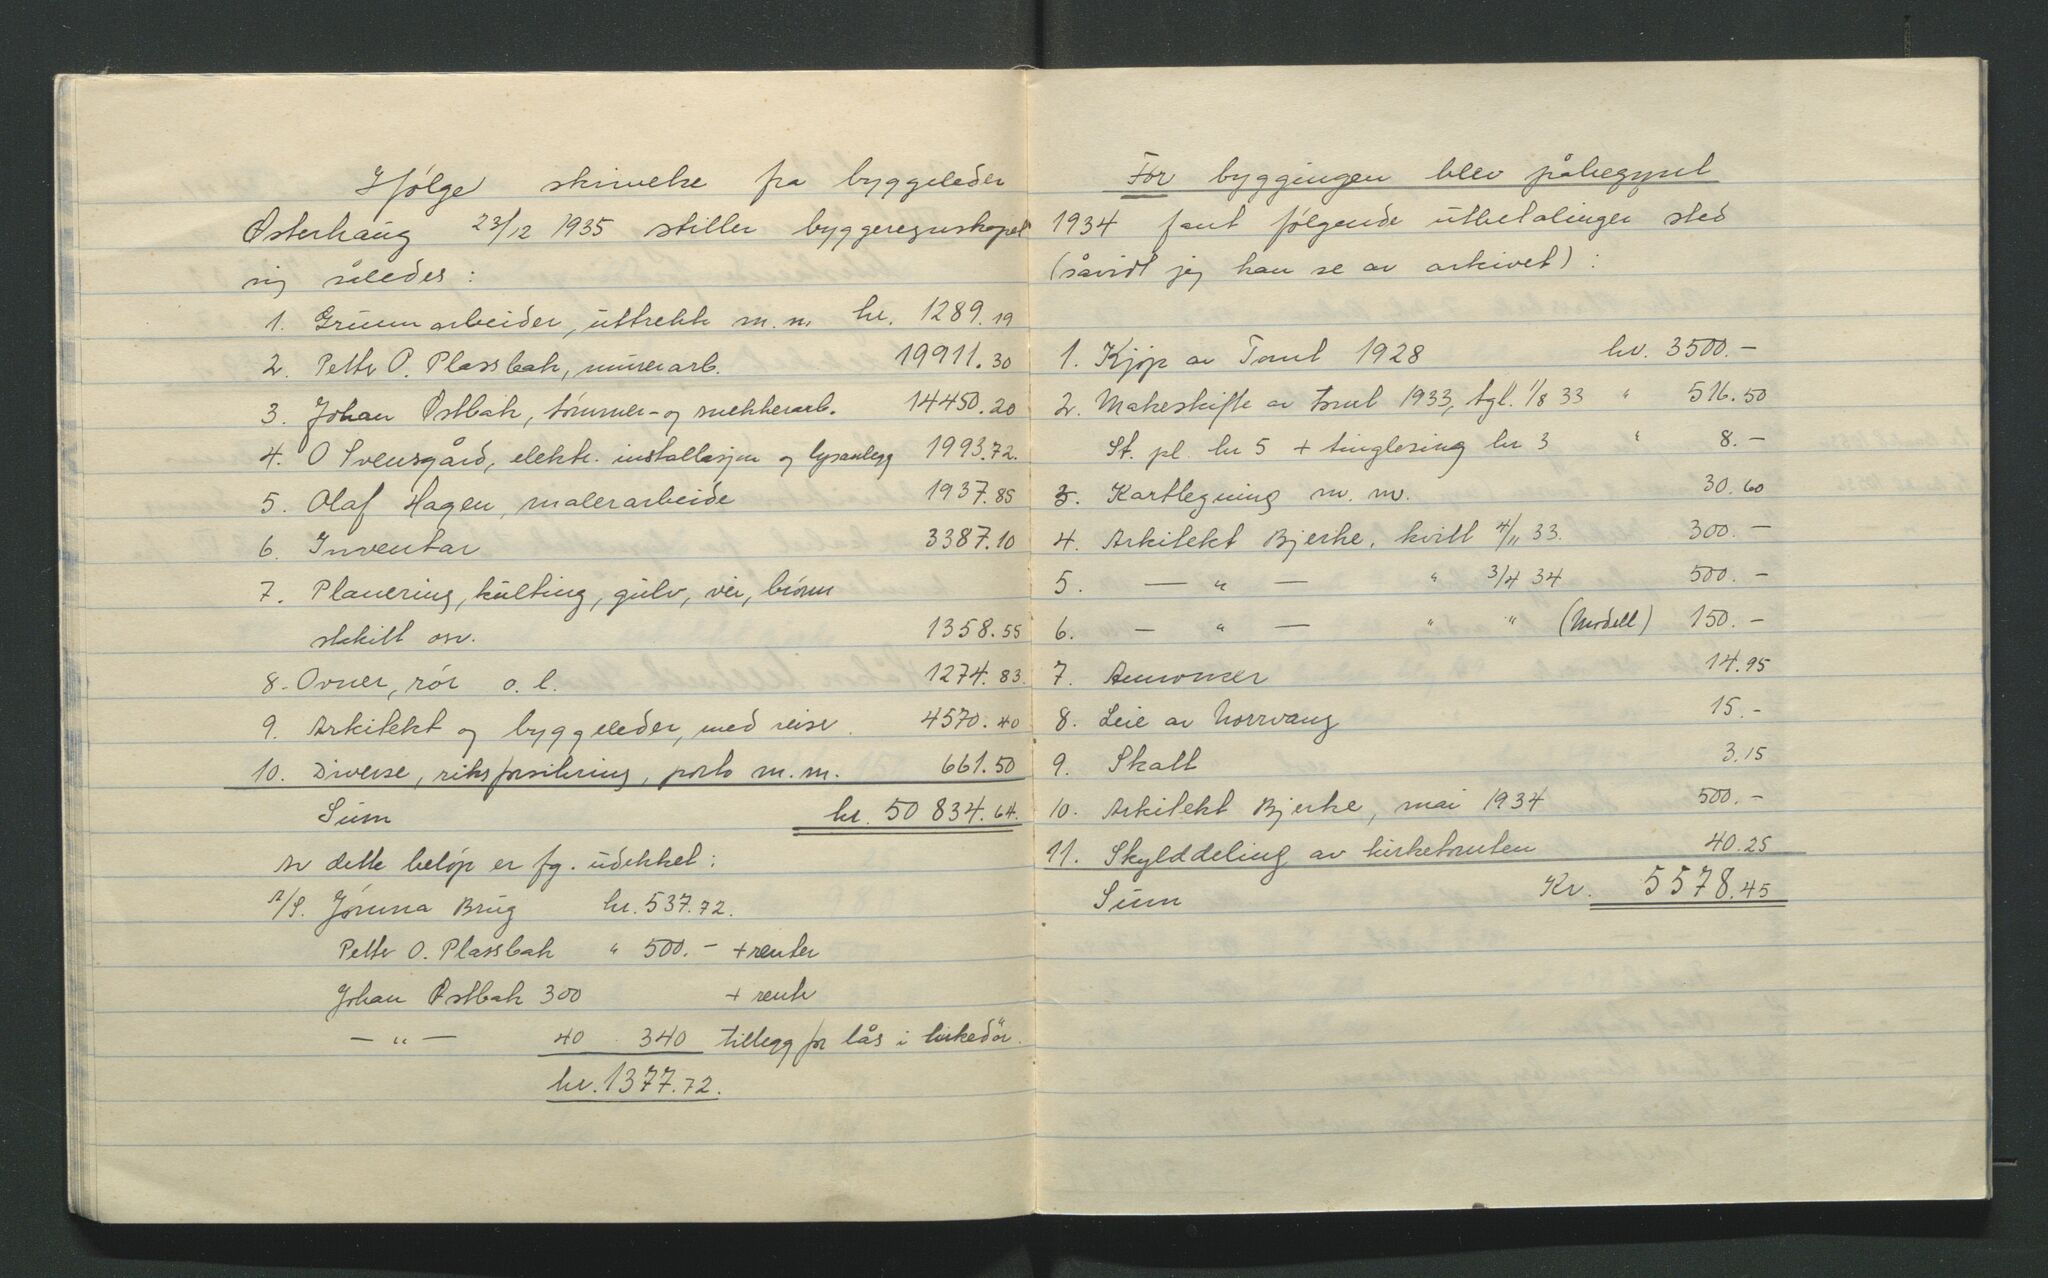 Ifølge skrivelse fra byggeleder
Østerhaug 23/12 1935 stiller byggeregnskapet
sig således :
1. Grunnarbeider, uttrekk m.m. kr. 1289.19
2. Petter O. Plassbak, murerarb. 19911.30
3. Johan Østbak, tømmer- og snekkerarb. 14450.20
4. O Svensgård, elektr. installasjon og lysanlegg 1993.72.
5. Olaf Hagen, malerarbeide 1937.85
6. Inventar 3387.10
7. Planering, kulting, gulv, vei, brønn
stakitt osv. 1358.55
8. Ovner, rör o.l. 1274.83.
9. Arkitekt og byggeleder, med reise. 4570.40
10. Diverse, riksforsikring, porto m.m. 661.50
Sum kr. 50 834.64.
Av dette beløp er fg. udekket:
A/S. Jömna Brug kr. 537.72.
Petter O. Plassbak " 500.- + renter
Johan Østbak 300 + rente
— " — 40 340 tillegg for lås i kirkedör.
kr. 1377.72.
Før byggingen blev påbegynt
1934 fant følgende utbetalinger sted
(såvidt jeg kan se av arkivet) :
1. Kjøp av Tomt 1928 kr. 3500.-
2. Makeskifte av tomt 1933, tgl. 1/8 33 " 516.50
St. pl. kr 5 + tinglesing kr 3 " 8.-
3. Kartlegning m.m. 30.60
4. Arkitekt Bjerke, kvitt 4/11 33. 300.-
5. — " — " 3/4 34 500.-
6. — " — " " (Modell) 150.-
7. Annonser 14.95
8. Leie av Norrvang 15.-
9. Skatt 3.15
10. Arkitekt Bjerke, mai 1934 500.-
11. Skylddeling av kirketomten 40.25
Sum Kr. 5578.45